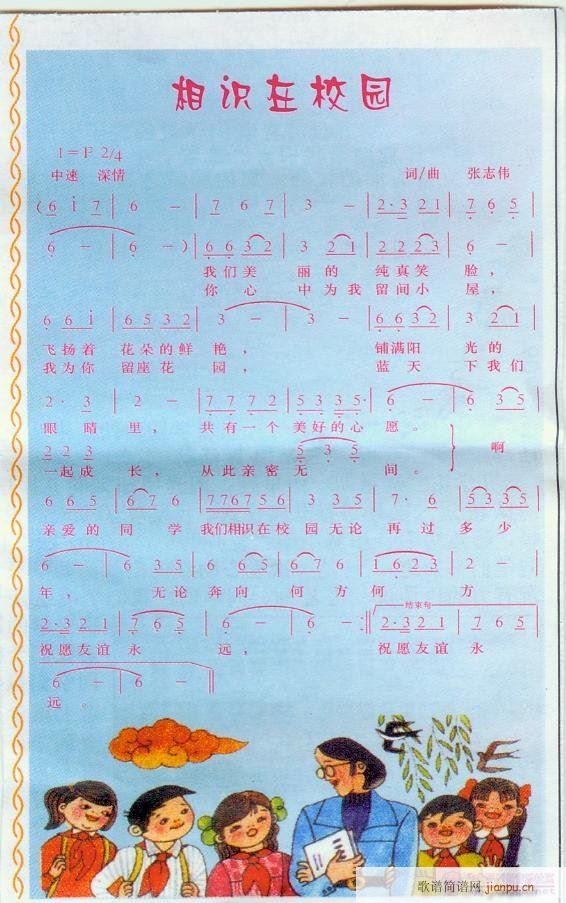 相识在校园
1=F 2/4
中速 深情 词/曲 张志伟
(6 i 7 | 6 - | 7 6 7 | 3 - | 2·3 2 1 | 7 6 5 |
6 - | 6 - ) | 6 6 3 2 | 3 2 1 | 2 2 2 3 | 6 - |
我们美 丽的 纯真笑 脸，
你心 中为我 留间小 屋，
6 6 i | 6 5 3 2 | 3 - | 3 - | 6 6 3 2 | 3 2 1 |
飞扬着 花朵的鲜 艳， 铺满阳 光的
我为你 留座花 园， 蓝天 下我们
2· 3 | 2 - | 7 7 7 2 | 5 3 3 5· | 6 - | 6 3 5 |
眼睛里， 共有一个 美好的心愿。
2 2 3 5 3 5 啊
一起成 长， 从此亲密无 间。
6 6 5 | 6 7 6 | 7 7 6 7 5 6 | 3 3 5 | 7· 6 | 5 3 3 5 |
亲爱的 同 学 我们相识在校 园无论 再过多少
6 - | 6 3 5 | 6 6 5 | 6 6 7 | 1 6 2 3 | 2 - |
年， 无论奔向 何方何 方
结束句
2·3 2 1 | 7 6 5 | 6 - | 6 - :‖ 2·3 2 1 | 7 6 5 |
祝愿友谊永 远， 祝愿友谊永
6 - | 6 - ‖
远。
歌谱简谱网
jianpu.cn